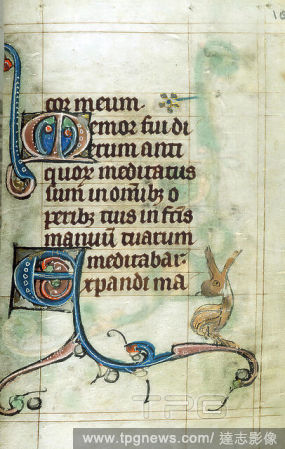 cor meum.
Memor fui di
erum anti
quoꝝ meditatus
sum in om̅ibꝫ o
peribꝫ tuis in fc̅is
manuū tuarum
meditabar.
Expandi ma
TPG
www.tpgnews.com/ 達志影像